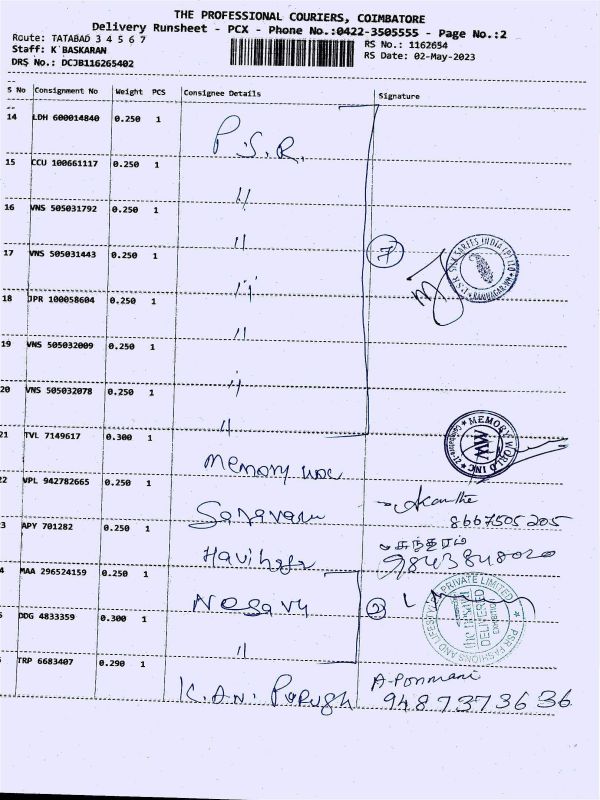 THE PROFESSIONAL COURIERS, COIMBATORE
Delivery Runsheet - PCX - Phone No.:0422-3505555 - Page No.:2
Route: TATABAD 3 4 5 6 7
RS No.: 1162654
Staff: K BASKARAN
RS Date: 02-May-2023
DRS No.: DCJB116265402
S No Consignment No Weight PCS Consignee Details Signature
14 LDH 600014840 0.250 1 P.S.R.
15 CCU 100661117 0.250 1 "
16 VNS 505031792 0.250 1 "
17 VNS 505031443 0.250 1 " 7
P.S.R SILK SAREES INDIA (P) LTD
18 JPR 100058604 0.250 1 "
19 VNS 505032009 0.250 1 "
20 VNS 505032078 0.250 1 "
21 TVL 7149617 0.300 1 memory
MEMORY WORLD INC
MW
22 VPL 942782665 0.250 1 Saravan
8667505205
23 APY 701282 0.250 1
சுந்தரம்
9843848020
24 MAA 296524159 0.250 1 2
PRIVATE LIMITED
DELIVERED
FASHIONS AND LIFESTYLE
DDG 4833359 0.300 1 "
TRP 6683407 0.290 1 K.A.N.
A-Ponmani
9487373636